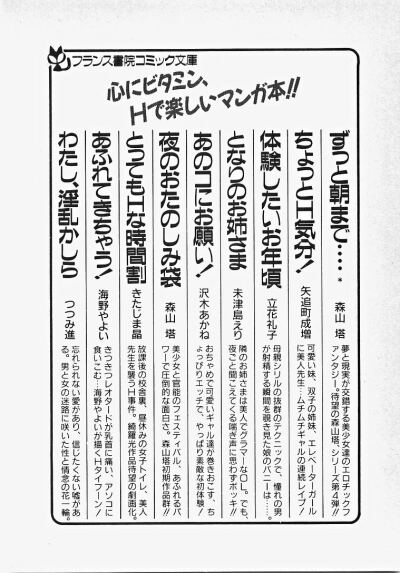 フランス書院コミック文庫
心にビタミン、
Hで楽しいマンガ本!!
ずっと朝まで…… 森山 塔
夢と現実が交錯する美少女達のエロチックフ
ァンタジー。待望の森山塔、シリーズ第4弾!!
ちょっとH気分! 矢追町成増
可愛い妹、双子の姉妹、エレベーターガール
に美人先生…ムチムチギャルの連続レイプ!
体験したいお年頃 立花礼子
母親シリルの抜群のテクニックで、憧れの男
が射精する瞬間を覗き見た娘のバニーは……。
となりのお姉さま 未津島えり
隣のお姉さまは美人でグラマーなOL。でも、
夜ごと聞こえてくる喘ぎ声に思わずボッキ!!
あのコにお願い! 沢木あかね
おちゃめで可愛いギャル達が巻きおこす、ち
ょっぴりエッチで、やっぱり素敵な初体験!
夜のおたのしみ袋 森山 塔
美少女と官能のフェスティバル、あふれるパ
ワーで圧倒的な面白さ。森山塔初期作品群!!
とってもHな時間割 きたじま晶
放課後の校舎裏、昼休みの女子トイレ、美人
先生を襲うH事件。綺羅光作品待望の劇画化。
あふれてきちゃう! 海野やよい
きつきつレオタードが乳首に痛い、アソコに
食いこむ…海野やよいが描くHタイフーン!
わたし、淫乱かしら つつみ進
忘れられない愛があり、信じたくない嘘があ
る。男と女の迷路に咲いた性と情念の花一輪。